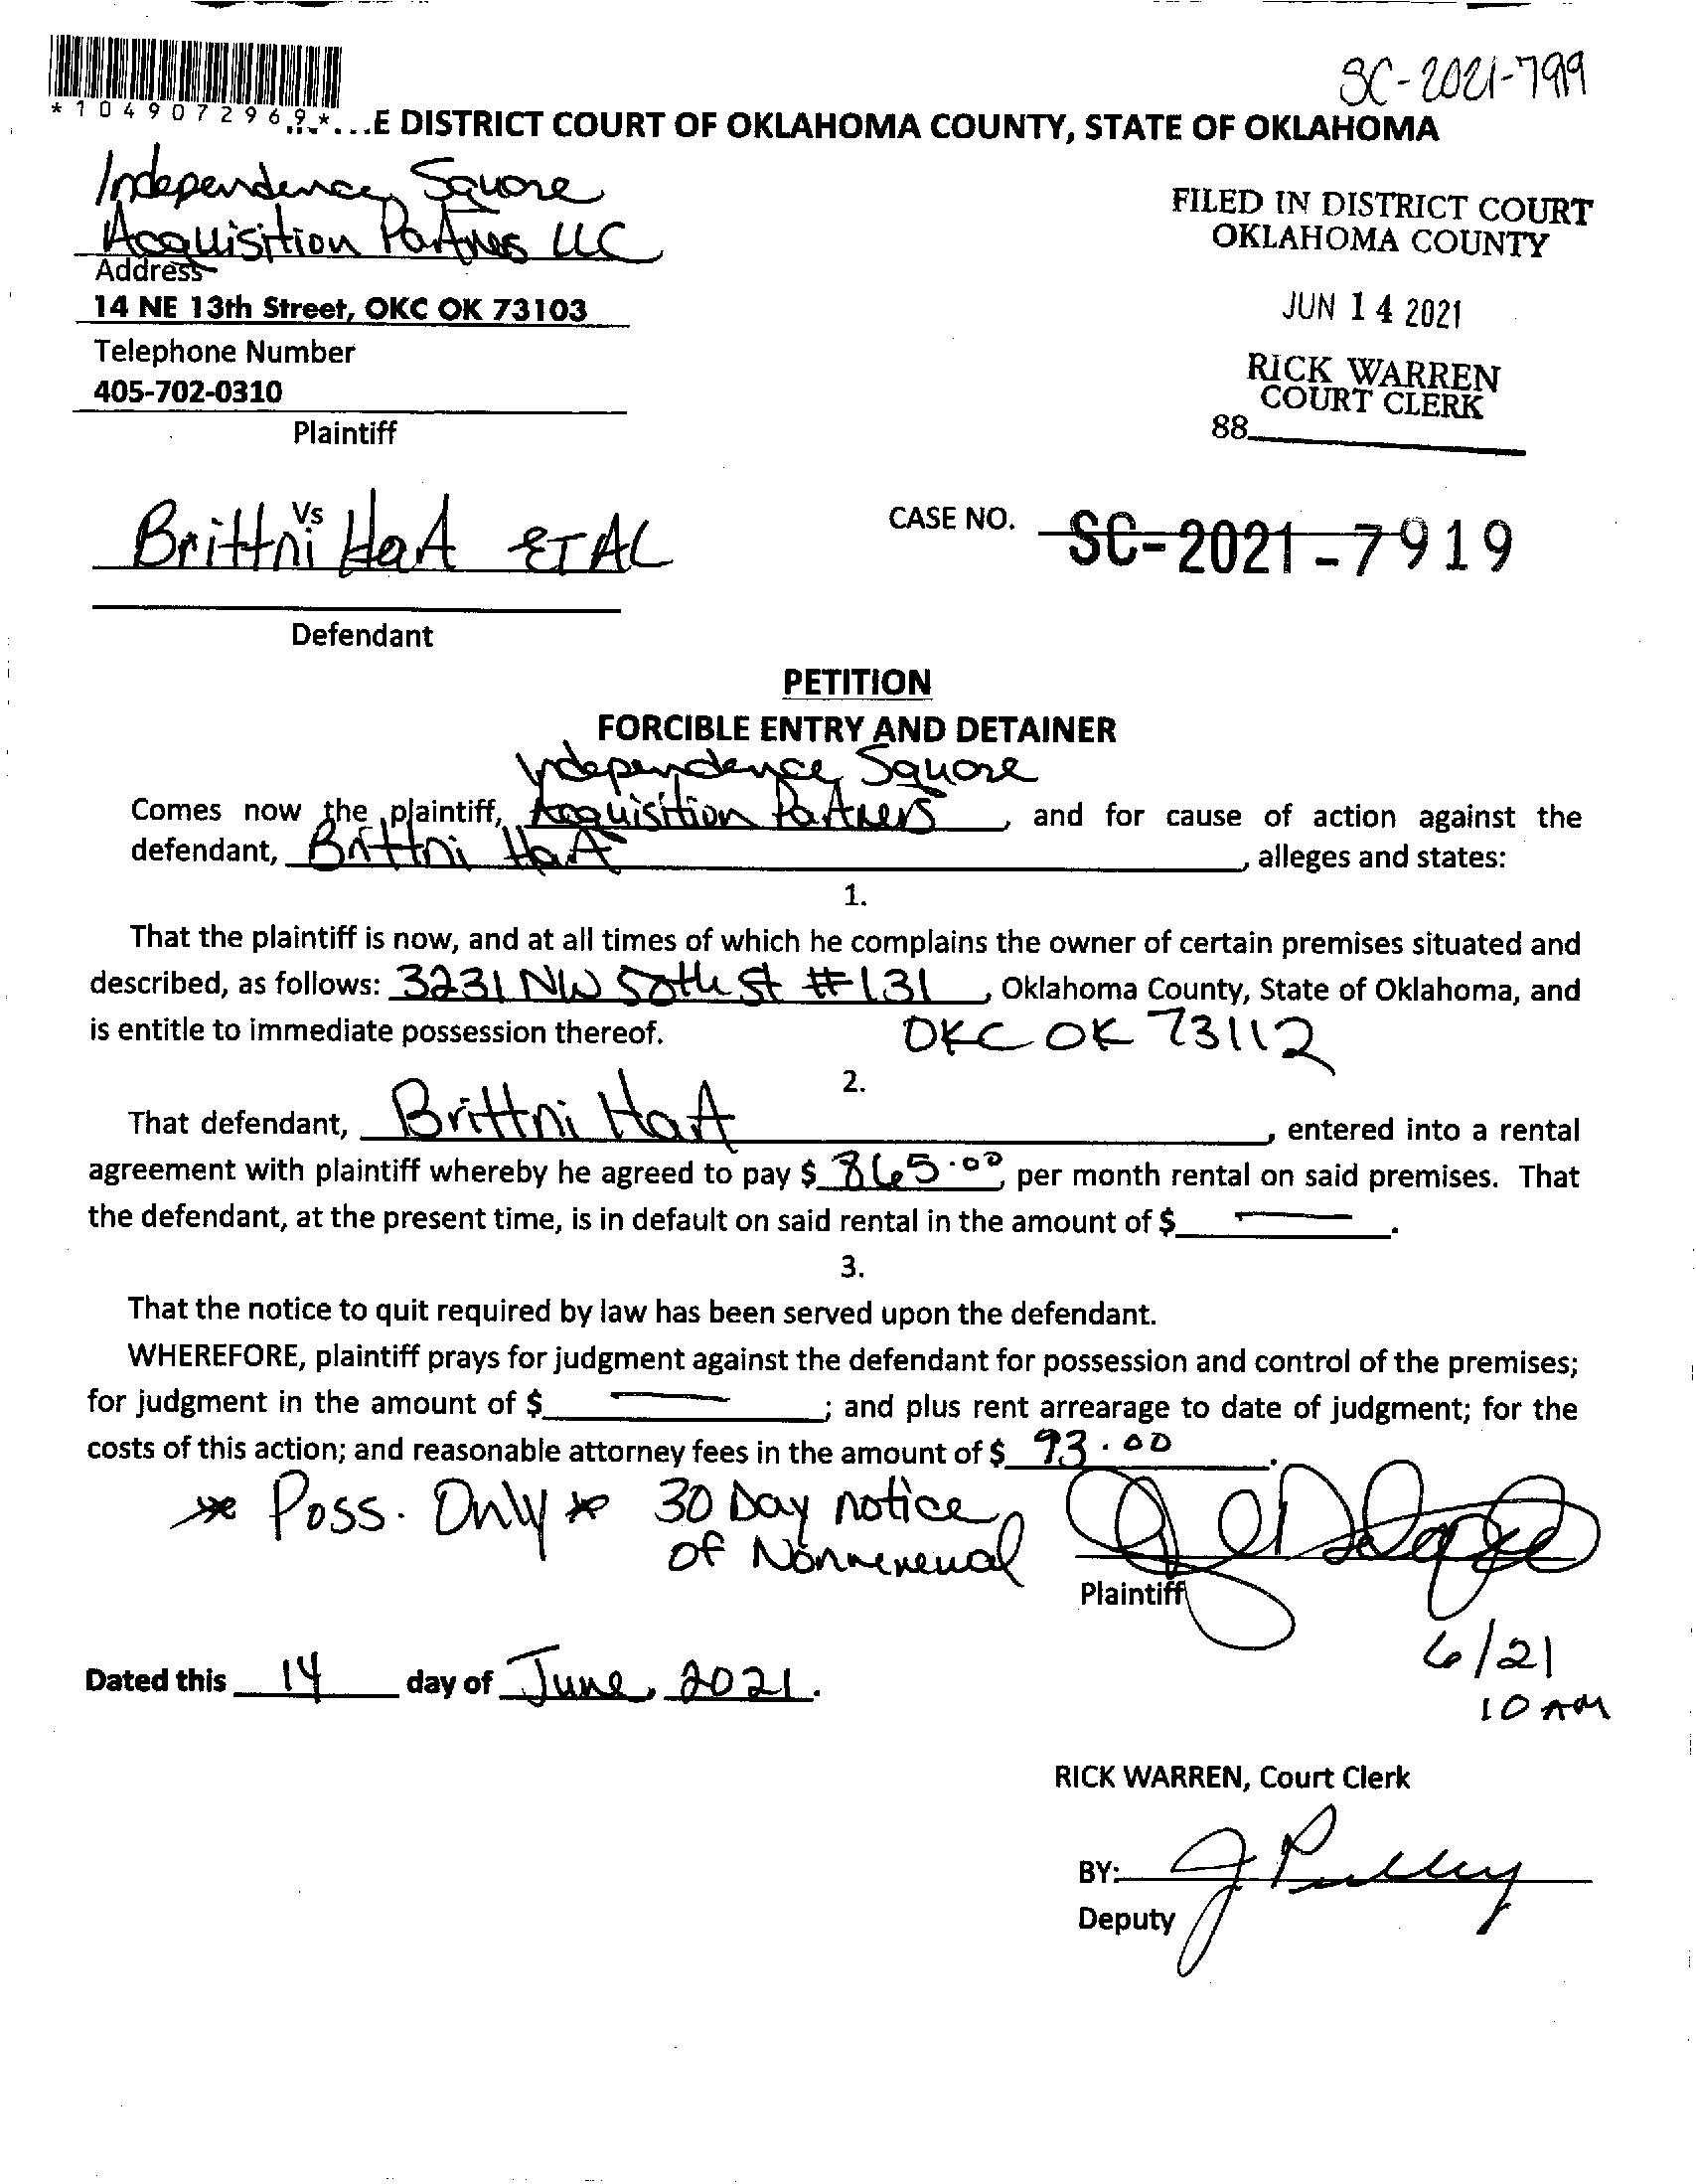 SC-2021-799
*1049072969*
...E DISTRICT COURT OF OKLAHOMA COUNTY, STATE OF OKLAHOMA
Independence Square
Acquisition Partners LLC
Address
14 NE 13th Street, OKC OK 73103
Telephone Number
405-702-0310
Plaintiff
FILED IN DISTRICT COURT
OKLAHOMA COUNTY
JUN 14 2021
RICK WARREN
COURT CLERK
88
Vs
Brittni Hart ET AL
Defendant
CASE NO. SC-2021-7919
PETITION
FORCIBLE ENTRY AND DETAINER
Independence Square
Comes now the plaintiff, Acquisition Partners, and for cause of action against the
defendant, Brittni Hart, alleges and states:
1.
That the plaintiff is now, and at all times of which he complains the owner of certain premises situated and
described, as follows: 3231 NW 50th St #131, Oklahoma County, State of Oklahoma, and
is entitle to immediate possession thereof. OKC OK 73112
2.
That defendant, Brittni Hart, entered into a rental
agreement with plaintiff whereby he agreed to pay $ 865.00, per month rental on said premises. That
the defendant, at the present time, is in default on said rental in the amount of $ —.
3.
That the notice to quit required by law has been served upon the defendant.
WHEREFORE, plaintiff prays for judgment against the defendant for possession and control of the premises;
for judgment in the amount of $ —; and plus rent arrearage to date of judgment; for the
costs of this action; and reasonable attorney fees in the amount of $ 93.00.
* Poss. Only * 30 Day notice
of Nonrenewal
Plaintiff
6/21
10 AM
Dated this 14 day of June, 2021.
RICK WARREN, Court Clerk
BY: J Pulley
Deputy